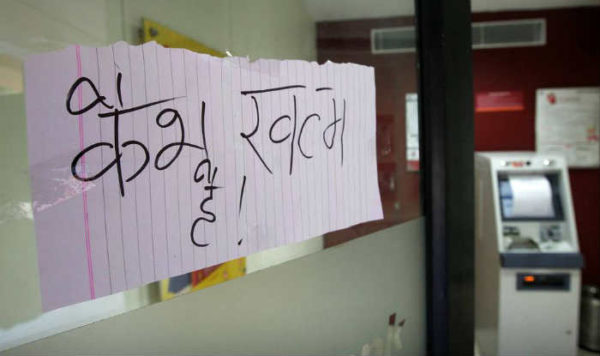 कैश खत्म
है !